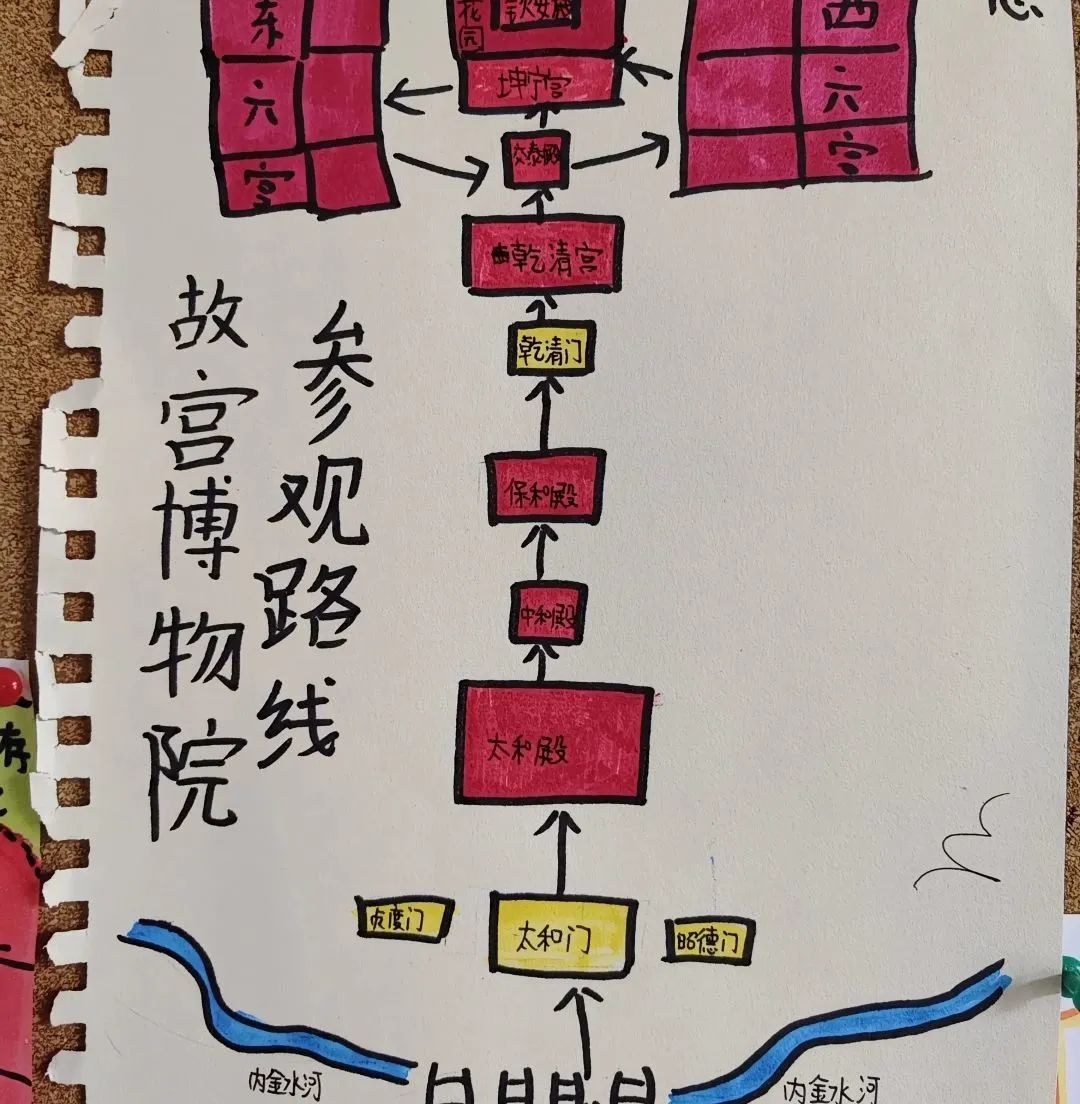 东六宫
花园
钦安殿
坤宁宫
西六宫
交泰殿
乾清宫
乾清门
故宫博物院
参观路线
保和殿
中和殿
太和殿
贞度门
太和门
昭德门
内金水河
内金水河
存